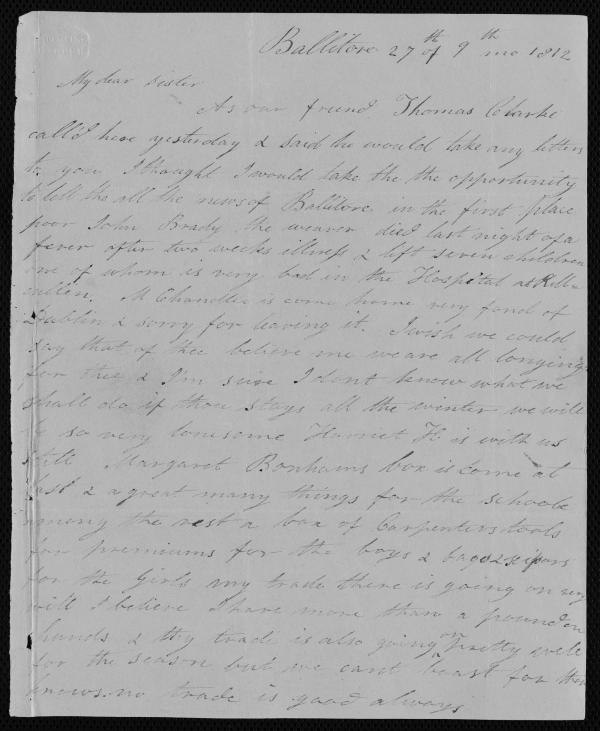 Ballitore 27th of 9th mo 1812
My dear Sister
As our friend Thomas Clarke
call'd here yesterday & said he would take any letters
to you I thought I would take the the opportunity
to tell the all the news of Ballitore in the first place
poor John Brady the weaver died last night of a
fever after two weeks illness & left seven children
one of whom is very bad in the Hospital at Kill=
cullen. M Chandlee is come home very fond of
Dublin & sorry for leaving it. I wish we could
say that of thee believe me we are all longing
for thee & I'm sure I dont know what we
shall do if thou stays all the winter we will
be so very lonesome Harriet H. is with us
still Margaret Bonhams box is come at
last & a great many things for the schools
among the rest a box of Carpenters tools
for premiums for the boys & bags & scissors
for the Girls my trade there is going on very
well I believe I have more than a pound on
hands & thy trade is also going on pretty well
for the season but we cant boast for thou
knows no trade is good always